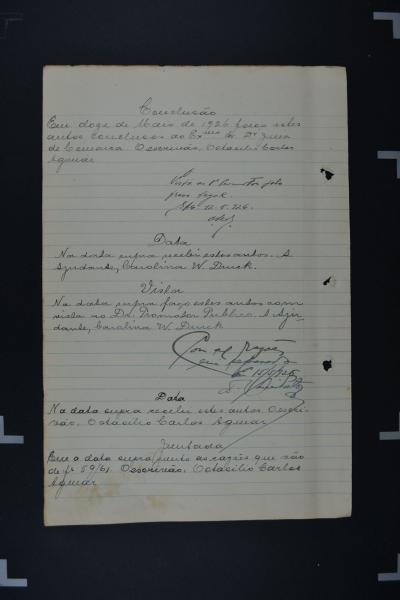 Conclusão
Em doze de Maio de 1926 faço estes
autos conclusos ao Exmo Sr. Dr. Juiz
de Comarca. O escrivão, Octacilio Carlos
Aguiar
Vista ao Dr. Promotor pelo
prazo legal.
12-5-926
Data
Na data supra recebi estes autos. A
Ajudante, Carolina W. Druck.
Vista
Na data supra faço estes autos com
vista ao Dr. Promotor Publico. A Aju-
dante, Carolina W. Druck
Com as razões
em separado
Data
Na data supra recebi estes autos. O escri-
vão, Octacilio Carlos Aguiar
Juntada
Em a data supra junto as razões que vão
de fs 59/61. O escrivão, Octacilio Carlos
Aguiar